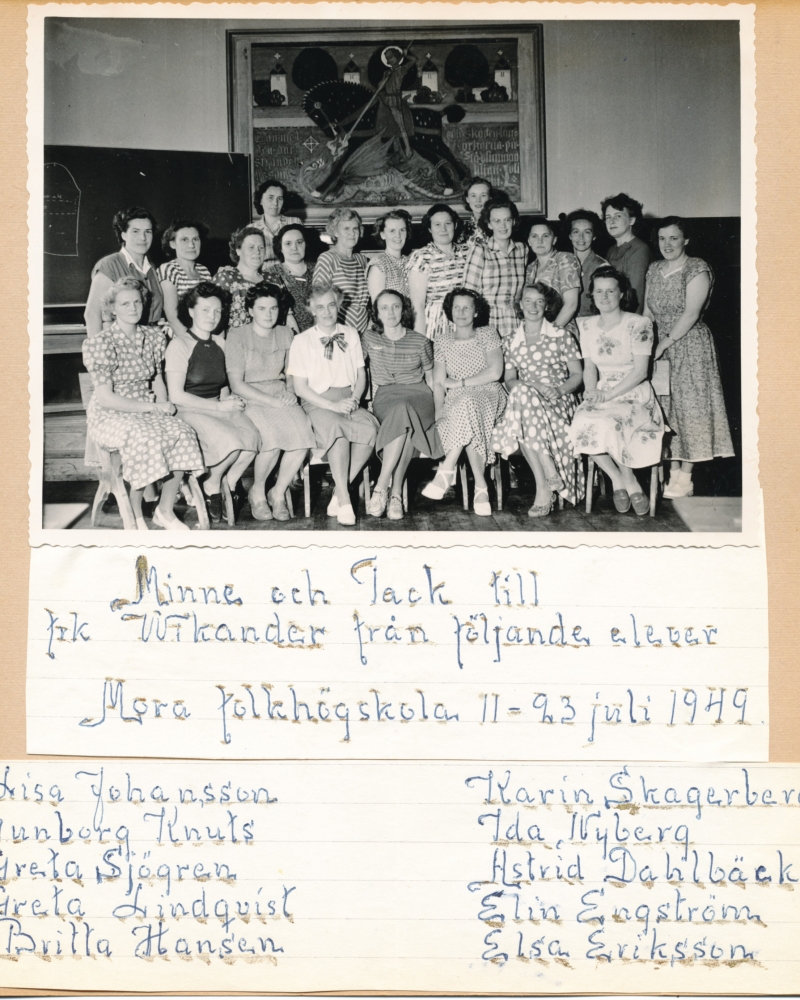 Minne och Tack till
frk Wikander från följande elever
Mora folkhögskola 11-23 juli 1949.
Lisa Johansson
Gunborg Knuts
Greta Sjögren
Greta Lindqvist
Britta Hansen
Karin Skagerberg
Ida Nyberg
Astrid Dahlbäck
Elin Engström
Elsa Eriksson